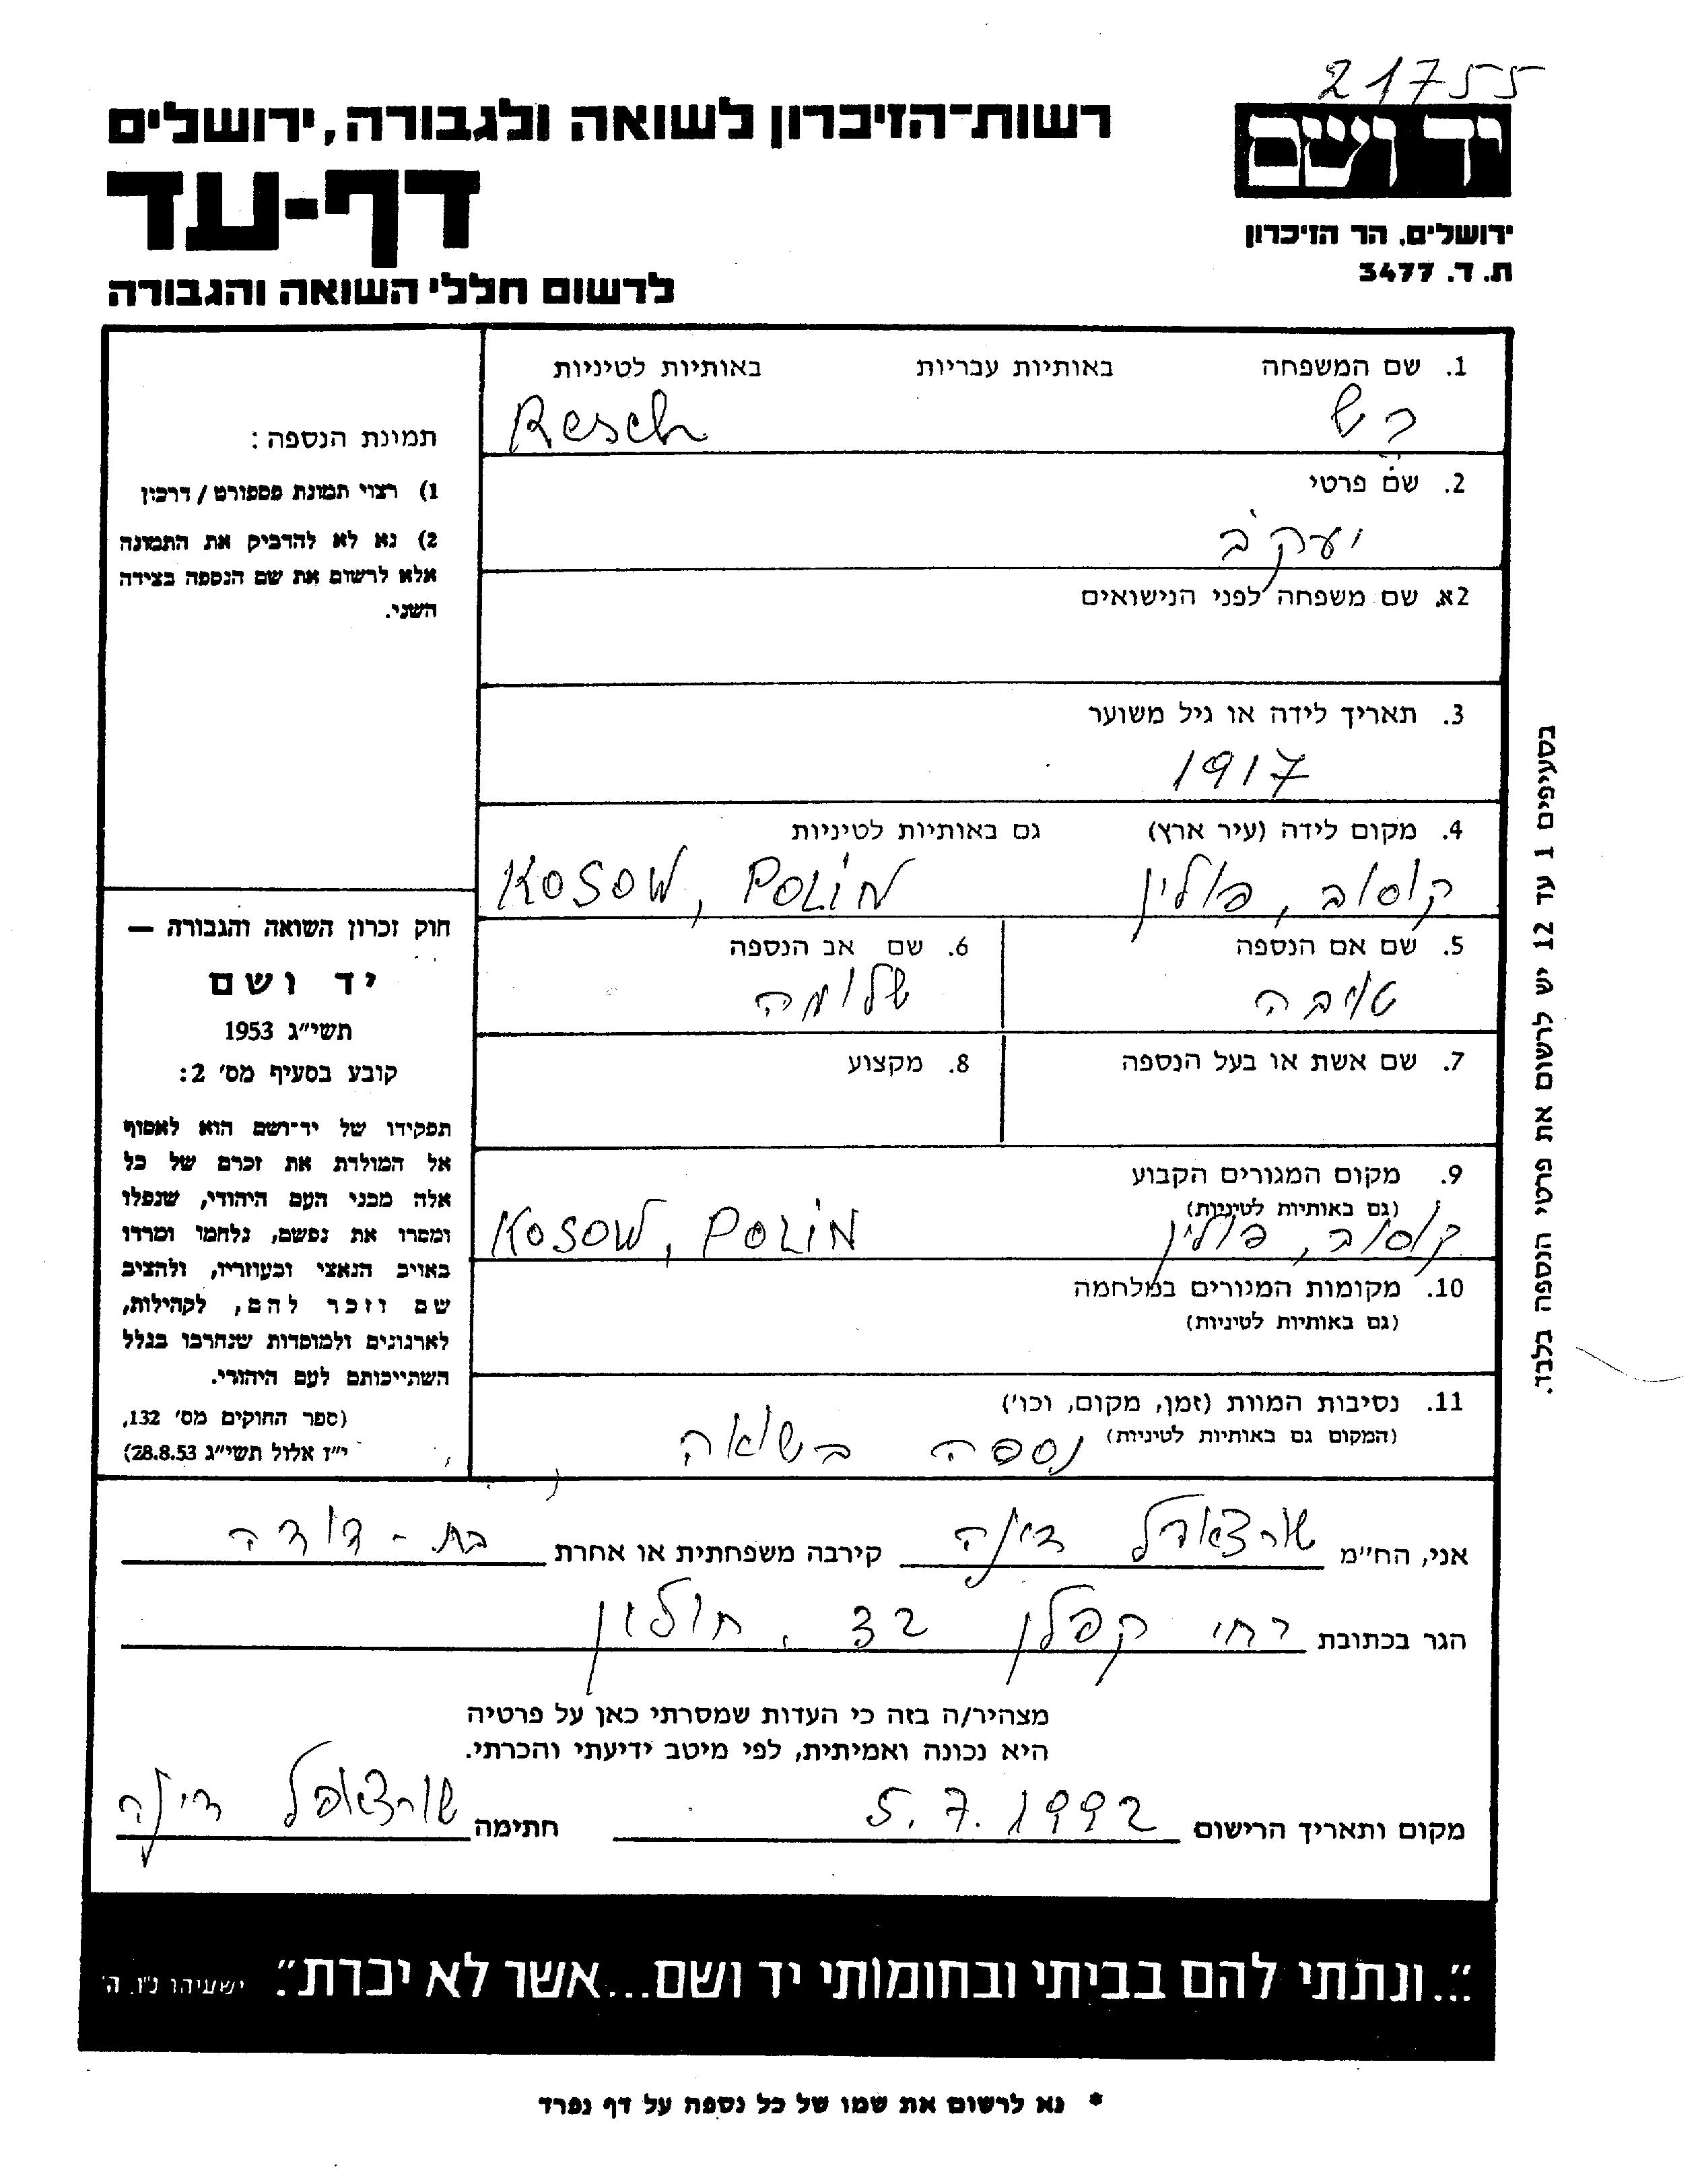 21755
יד ושם
רשות־הזיכרון לשואה ולגבורה, ירושלים
דף-עד
ירושלים, הר הזיכרון
ת. ד. 3477
לרשום חללי השואה והגבורה
1. שם המשפחה באותיות עבריות באותיות לטיניות
רש Resch
2. שם פרטי
יעקב
2א. שם משפחה לפני הנישואים
3. תאריך לידה או גיל משוער
1917
4. מקום לידה (עיר ארץ) גם באותיות לטיניות
קוסוב, פולין KOSOW, POLIN
5. שם אם הנספה
טויבה
6. שם אב הנספה
שלומה
7. שם אשת או בעל הנספה
8. מקצוע
9. מקום המגורים הקבוע
(גם באותיות לטיניות)
קוסוב, פולין KOSOW, POLIN
10. מקומות המגורים במלחמה
(גם באותיות לטיניות)
11. נסיבות המוות (זמן, מקום, וכו')
(המקום גם באותיות לטיניות)
נספה בשואה
תמונת הנספה:
1) רצוי תמונת פספורט / דרכון
2) נא לא להדביק את התמונה
אלא לרשום את שם הנספה בצידה
השני.
חוק זכרון השואה והגבורה —
יד ושם
תשי"ג 1953
קובע בסעיף מס' 2:
תפקידו של יד־ושם הוא לאסוף
אל המולדת את זכרם של כל
אלה מבני העם היהודי, שנפלו
ומסרו את נפשם, נלחמו ומרדו
באויב הנאצי ובעוזריו, ולהציב
שם וזכר להם, לקהילות,
לארגונים ולמוסדות שנחרבו בגלל
השתייכותם לעם היהודי.
(ספר החוקים מס' 132,
י"ז אלול תשי"ג 28.8.53)
בסעיפים 1 עד 12 יש לרשום את פרטי הנספה בלבד.
אני, הח"מ שורצאפל דינה קירבה משפחתית או אחרת בת-דודה
הגר בכתובת רחי קפלן 32, חולון
מצהיר/ה בזה כי העדות שמסרתי כאן על פרטיה
היא נכונה ואמיתית, לפי מיטב ידיעתי והכרתי.
מקום ותאריך הרישום 5.7.1992 חתימה שורצאפל דינה
"...ונתתי להם בביתי ובחומותי יד ושם...אשר לא יכרת". ישעיהו נ"ו, ה'
* נא לרשום את שמו של כל נספה על דף נפרד